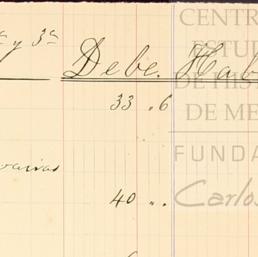 y 3ª Debe. Hab
33 .. 6
varias
40 .. ..
CENTR
ESTU
DE HIS
DE ME
FUNDA
Carlos